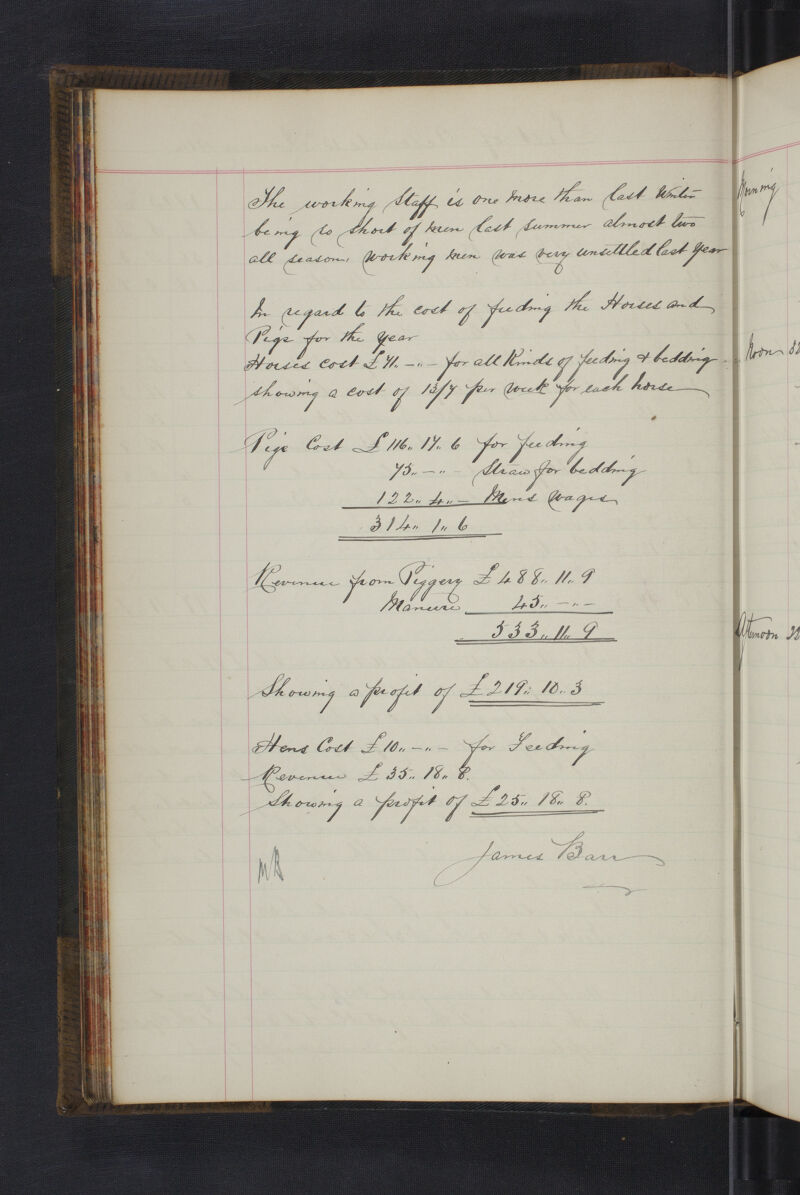 The working Staff is one more than last Winter
being so short of men last summer almost two
all season, working men was very unsettled last year
In regard to the cost of feeding the Horses and
Pigs for the year
Horses cost £71. -"- for all Kinds of feeding & bedding
showing a cost of 13/7 per week for each horse
Pigs Cost £116" 17" 6 for feeding
75" -"- Straw for bedding
122" 4" - Mens wages
314" 1" 6
Revenue from Piggery £488" 11" 9
Manure 45" -"-
533" 11" 9
Showing a profit of £219" 10" 3
Hens Cost £10" -"- for Feeding
Revenue £35" 18" 8.
Showing a profit of £25" 18" 8.
James Barr
MB
Morning
Noon
Afternoon